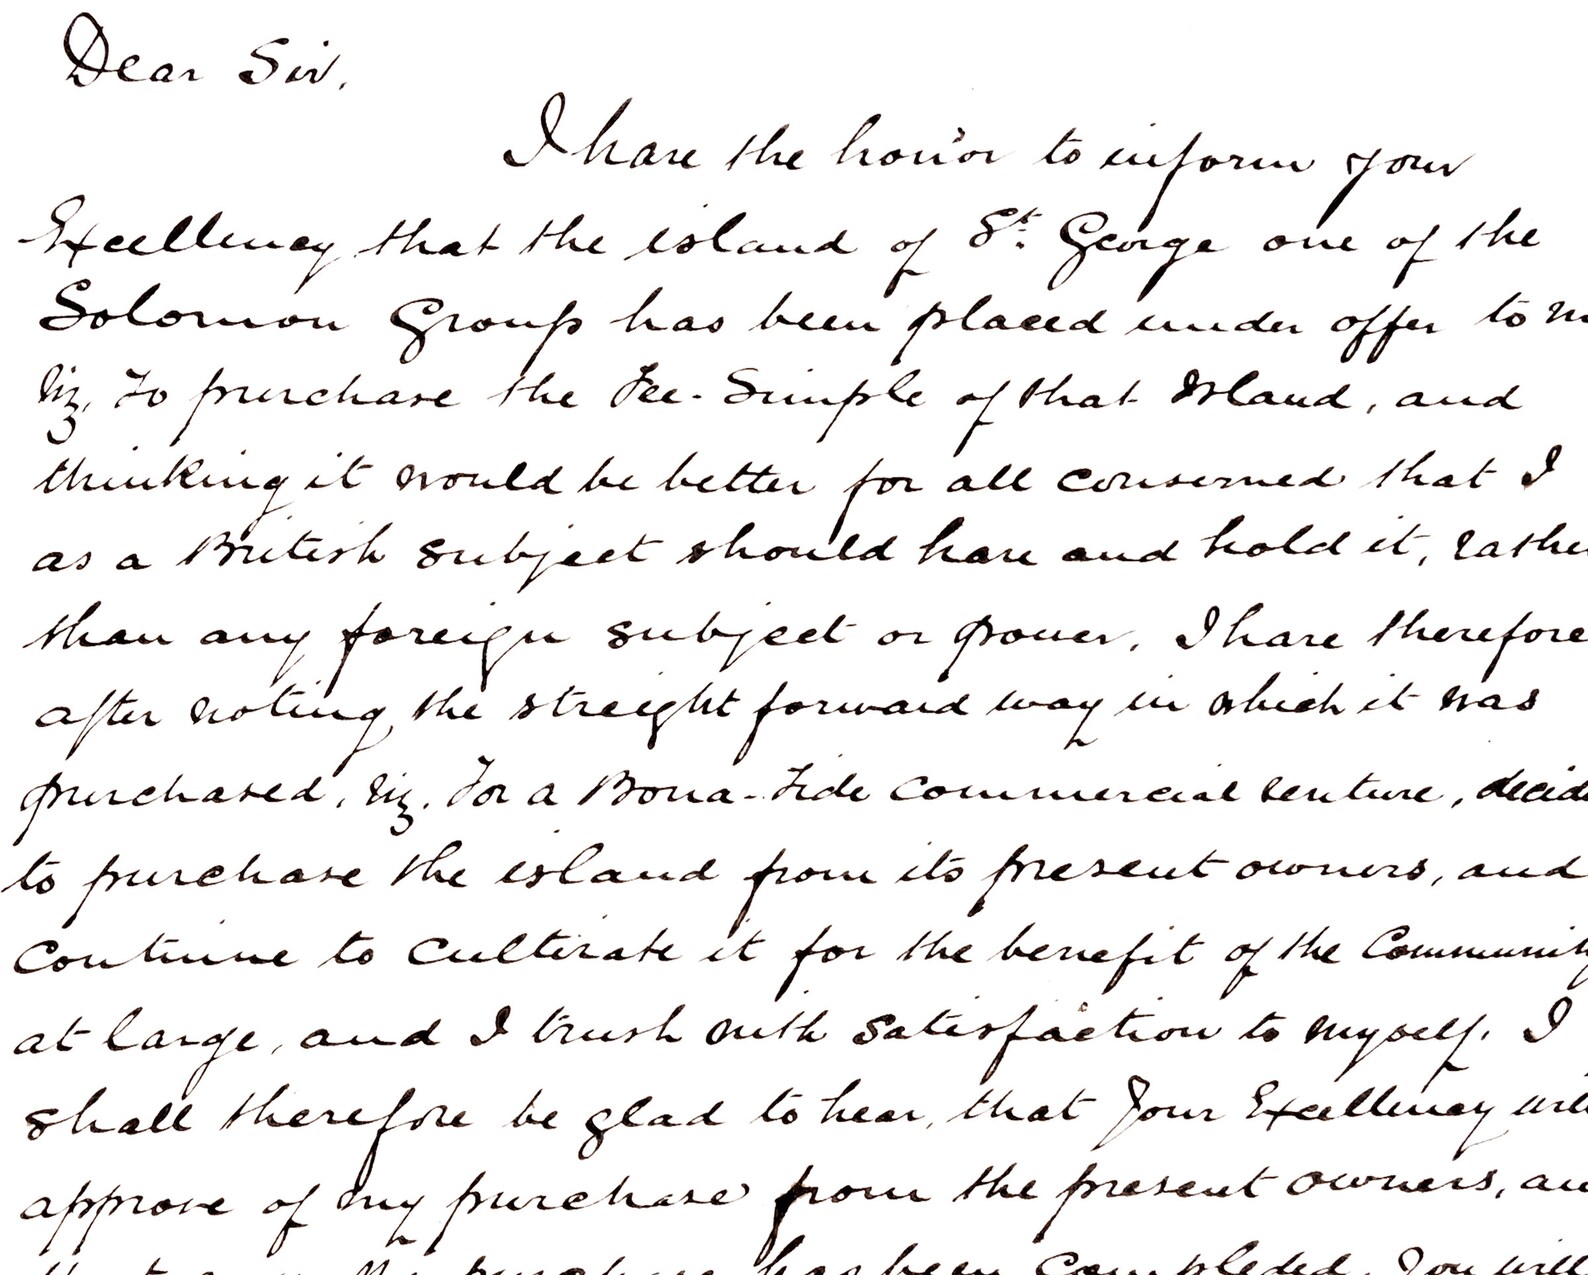 Dear Sir,
I have the honor to inform your
Excellency that the island of St. George one of the
Solomon Group has been placed under offer to
Viz, To purchase the Fee-Simple of that Island, and
thinking it would be better for all conserned that I
as a British subject should have and hold it, rather
than any foreign subject or power, I have therefore
after noting the streight forward way in which it was
purchased, viz, For a Bona-Fide commercial venture, decide
to purchase the island from its present owners, and
continue to cultivate it for the benefit of the Community
at large, and I trush with satisfaction to myself. I
shall therefore be glad to hear, that Your Excellency will
approve of my purchase from the present owners,
purchase has been Completed, You will